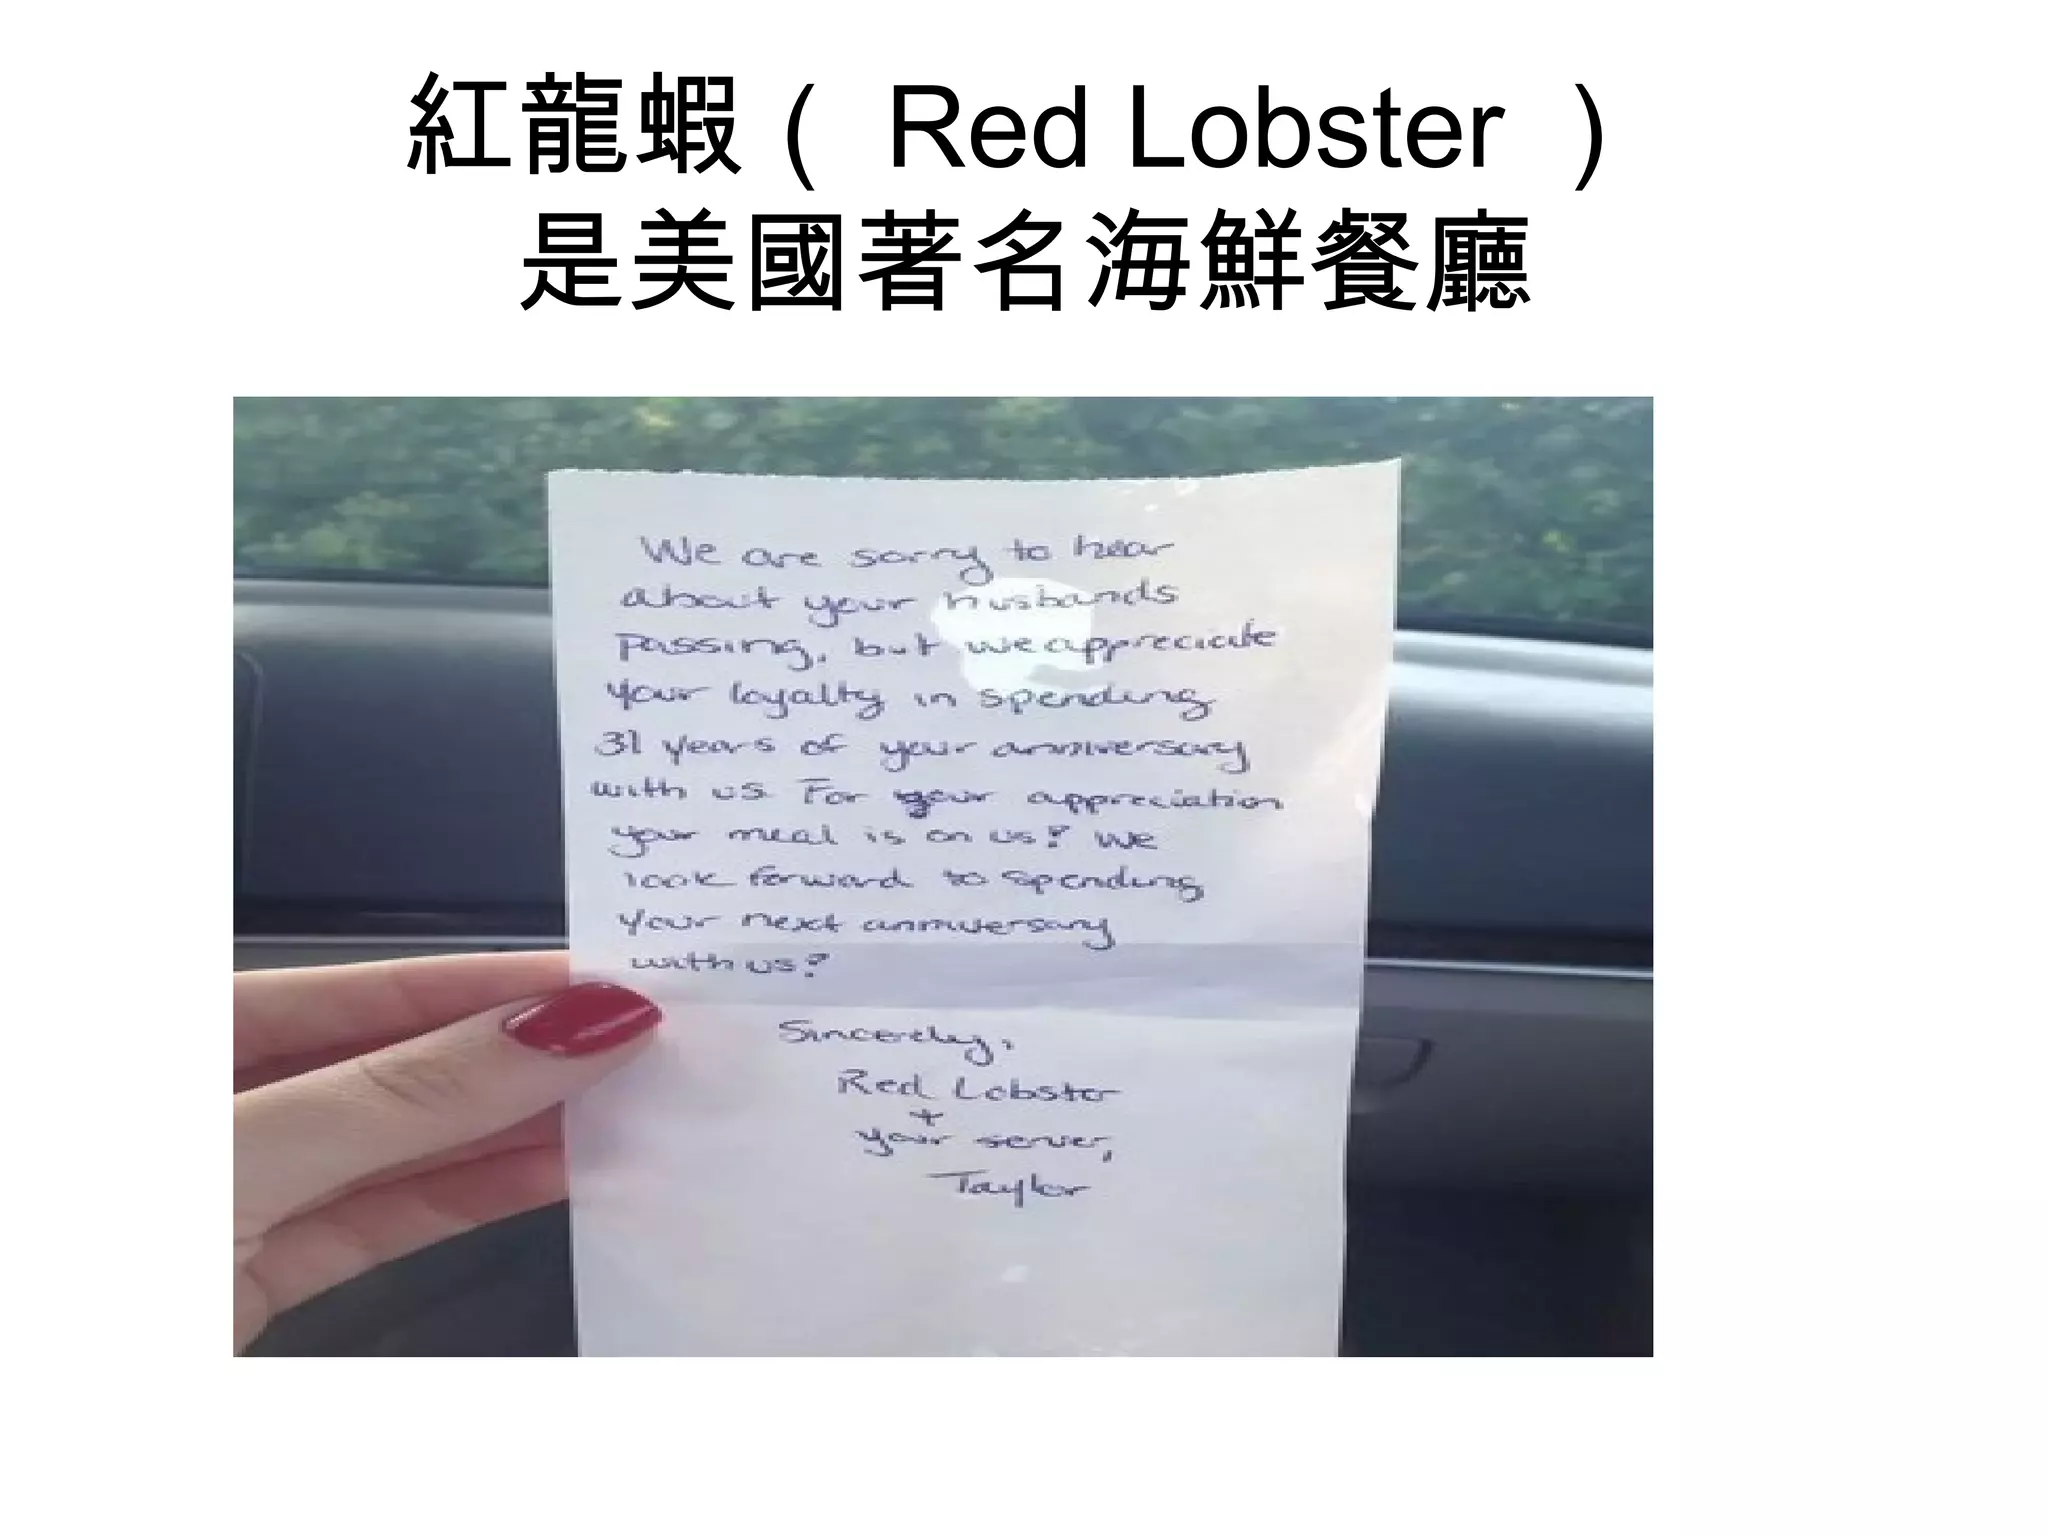 紅龍蝦（ Red Lobster ）
是美國著名海鮮餐廳
We are sorry to hear
about your husbands
passing, but we appreciate
your loyalty in spending
31 years of your anniversary
with us. For your appreciation
your meal is on us! We
look forward to spending
your next anniversary
with us!
Sincerely,
Red Lobster
+
your server,
Taylor